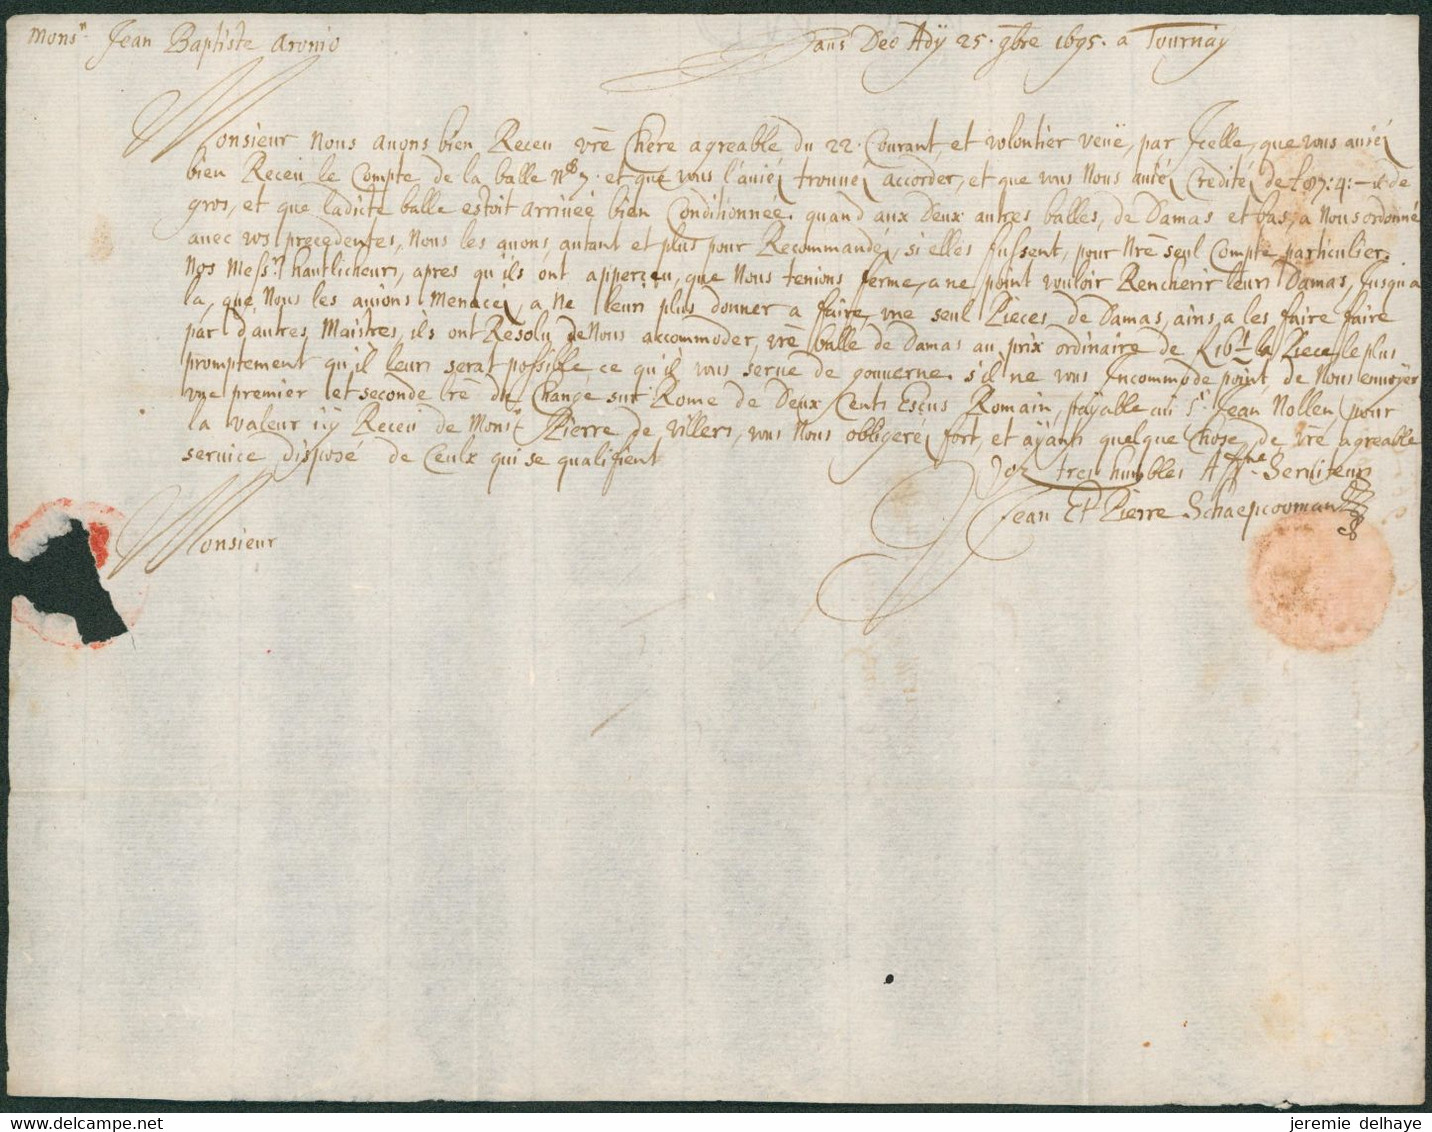 Mons.r Jean Baptiste Aronio
Laus Deo Adÿ 25. 9bre 1695. a Tournaÿ
Monsieur nous auons bien Receu vr̃e Chere agreable du 22. Courant, et volontier veüe, par Jcelle, que vous auiéz
bien Receu le Compte de la balle N° 7. et que vous l'auiéz trouuéz accorder, et que vous Nous auéz Créditéz de £ 87:4:- de
gros, et que ladicte balle estoit arriueé bien Conditionneé. quand aux Deux autres balles, de Damas et bas, a Nous ordonné
auec vos precedentes, Nous les auons, autant et plus pour Recommandéz, si elles fussent, pour Nr̃e seul Compte particulier.
Nos Mess.rs hautlicheurs, apres qu'ils ont apperceu, que Nous tenions ferme, a ne point vouloir Rencherir leurs Damas, Jusqu a
la, que Nous les auions Menacéz, a Ne leurs plus donner a faire, vne seul Pieces de Damas, ains a les faire faire
par d'autres Maistres, ils ont Resolu de Nous accommoder, vr̃e balle de Damas au prix ordinaire de £ 16 la Piece, le plus
promptement qu'il leurs serat possible, ce qu'il vous serue de gouuerne. s'il ne vous Jncommode point, de Nous enuoyer
vne premier et seconde lr̃e de Change sur Rome de Deux Cents Escus Romain, payable au S.r Jean Nollen, pour
la valeur icy Receu de Mons.r Pierre de Villers, vous Nous obligeréz fort, et aÿants quelque Chose, de vr̃e agreable
seruice disposé de Ceulx qui se qualifient
Voz tres humbles Aff.ne Seruiteurs
Jean Et Pierre Schaepcooman
Monsieur
jeremie delhaye